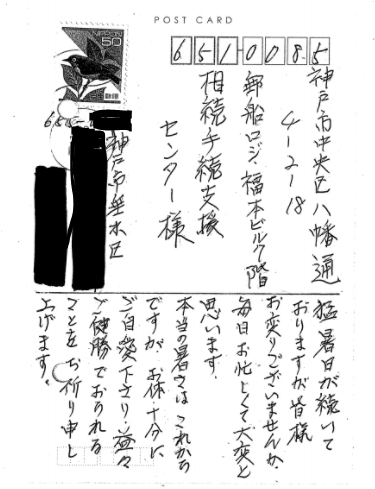 POST CARD
NIPPON
50
651-0085
神戸市中央区八幡通
4-2-18
郵船ロジ・福本ビル7階
相続手続支援
センター様
神戸市垂水区
猛暑日が続いて
おりますが皆様
お変りございませんか
毎日お忙しくて大変と
思います。
本当の暑さはこれから
ですが、お体十分に
ご自愛下さり益々
ご健勝でおられる
ことをお祈り申し
上げます。